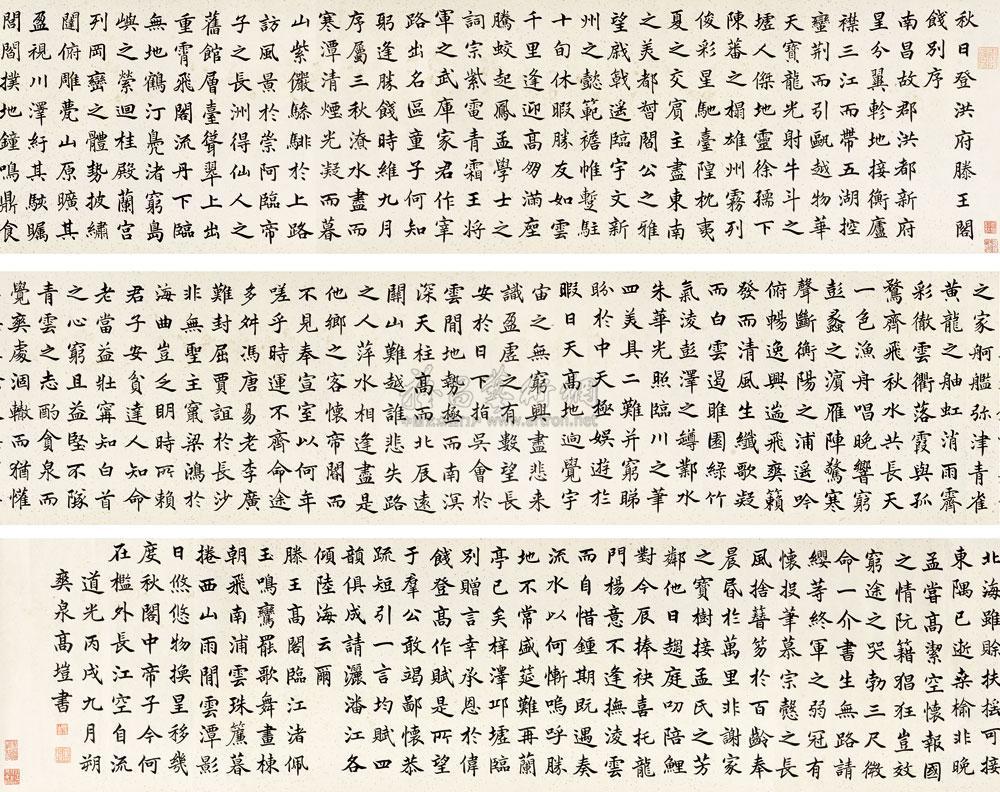 秋日登洪府滕王閣
餞別序
南昌故郡洪都新府
星分翼軫地接衡廬
襟三江而帶五湖控
蠻荆而引甌越物華
天寶龍光射牛斗之
墟人傑地靈徐孺下
陳蕃之榻雄州霧列
俊彩星馳臺隍枕夷
夏之交賓主盡東南
之美都督閻公之雅
望棨戟遥臨宇文新
州之懿範襜帷暫駐
十旬休暇勝友如雲
千里逢迎高朋滿座
騰蛟起鳳孟學士之
詞宗紫電青霜王將
軍之武庫家君作宰
路出名區童子何知
躬逢勝餞時維九月
序屬三秋潦水盡而
寒潭清煙光凝而暮
山紫儼驂騑於上路
訪風景於崇阿臨帝
子之長洲得仙人之
舊館層臺聳翠上出
重霄飛閣流丹下臨
無地鶴汀鳧渚窮島
嶼之縈迴桂殿蘭宫
列岡巒之體勢披繡
闥俯雕甍山原曠其
盈視川澤紆其駭矚
閭閻撲地鐘鳴鼎食
之家舸艦弥津青雀
黃龍之舳虹消雨霽
彩徹雲衢落霞與孤
鶩齊飛秋水共長天
一色漁舟唱晚響窮
彭蠡之濱雁陣驚寒
聲斷衡陽之浦遥吟
俯暢逸興遄飛爽籟
發而清風生纖歌凝
而白雲遏睢園緑竹
氣凌彭澤之罇鄴水
朱華光照臨川之筆
四美具二難并窮睇
盼於中天極娱遊於
暇日天高地迥覺宇
宙之無窮興盡悲來
識盈虛之有數望長
安於日下指吳會於
雲間地勢極而南溟
深天柱高而北辰遠
關山難越誰悲失路
之人萍水相逢盡是
他鄉之客懷帝閽而
不見奉宣室以何年
嗟乎時運不齊命途
多舛馮唐易老李廣
難封屈賈誼於長沙
非無聖主竄梁鴻於
海曲豈乏明時所賴
君子安貧達人知命
老當益壯寧知白首
之心窮且益堅不墜
青雲之志酌貪泉而
覺爽處涸轍而猶懽
北海雖賒扶摇可接
東隅已逝桑榆非晚
孟嘗高潔空懷報國
之情阮籍猖狂豈效
窮途之哭勃三尺微
命一介書生無路請
纓等終軍之弱冠有
懷投筆慕宗慤之長
風捨簪笏於百齡奉
晨昏於萬里非謝家
之寶樹接孟氏之芳
鄰他日趨庭叨陪鯉
對今辰捧袂喜托龍
門楊意不逢撫凌雲
而自惜鍾期既遇奏
流水以何慚嗚呼勝
地不常盛筵難再蘭
亭已矣梓澤邱墟臨
別贈言幸承恩於偉
餞登高作賦是所望
于羣公敢竭鄙懷恭
疏短引一言均賦四
韻俱成請灑潘江各
傾陸海云爾
滕王高閣臨江渚佩
玉鳴鸞罷歌舞畫棟
朝飛南浦雲珠簾暮
捲西山雨閒雲潭影
日悠悠物換星移幾
度秋閣中帝子今何
在檻外長江空自流
道光丙戌九月朔
爽泉高塏書